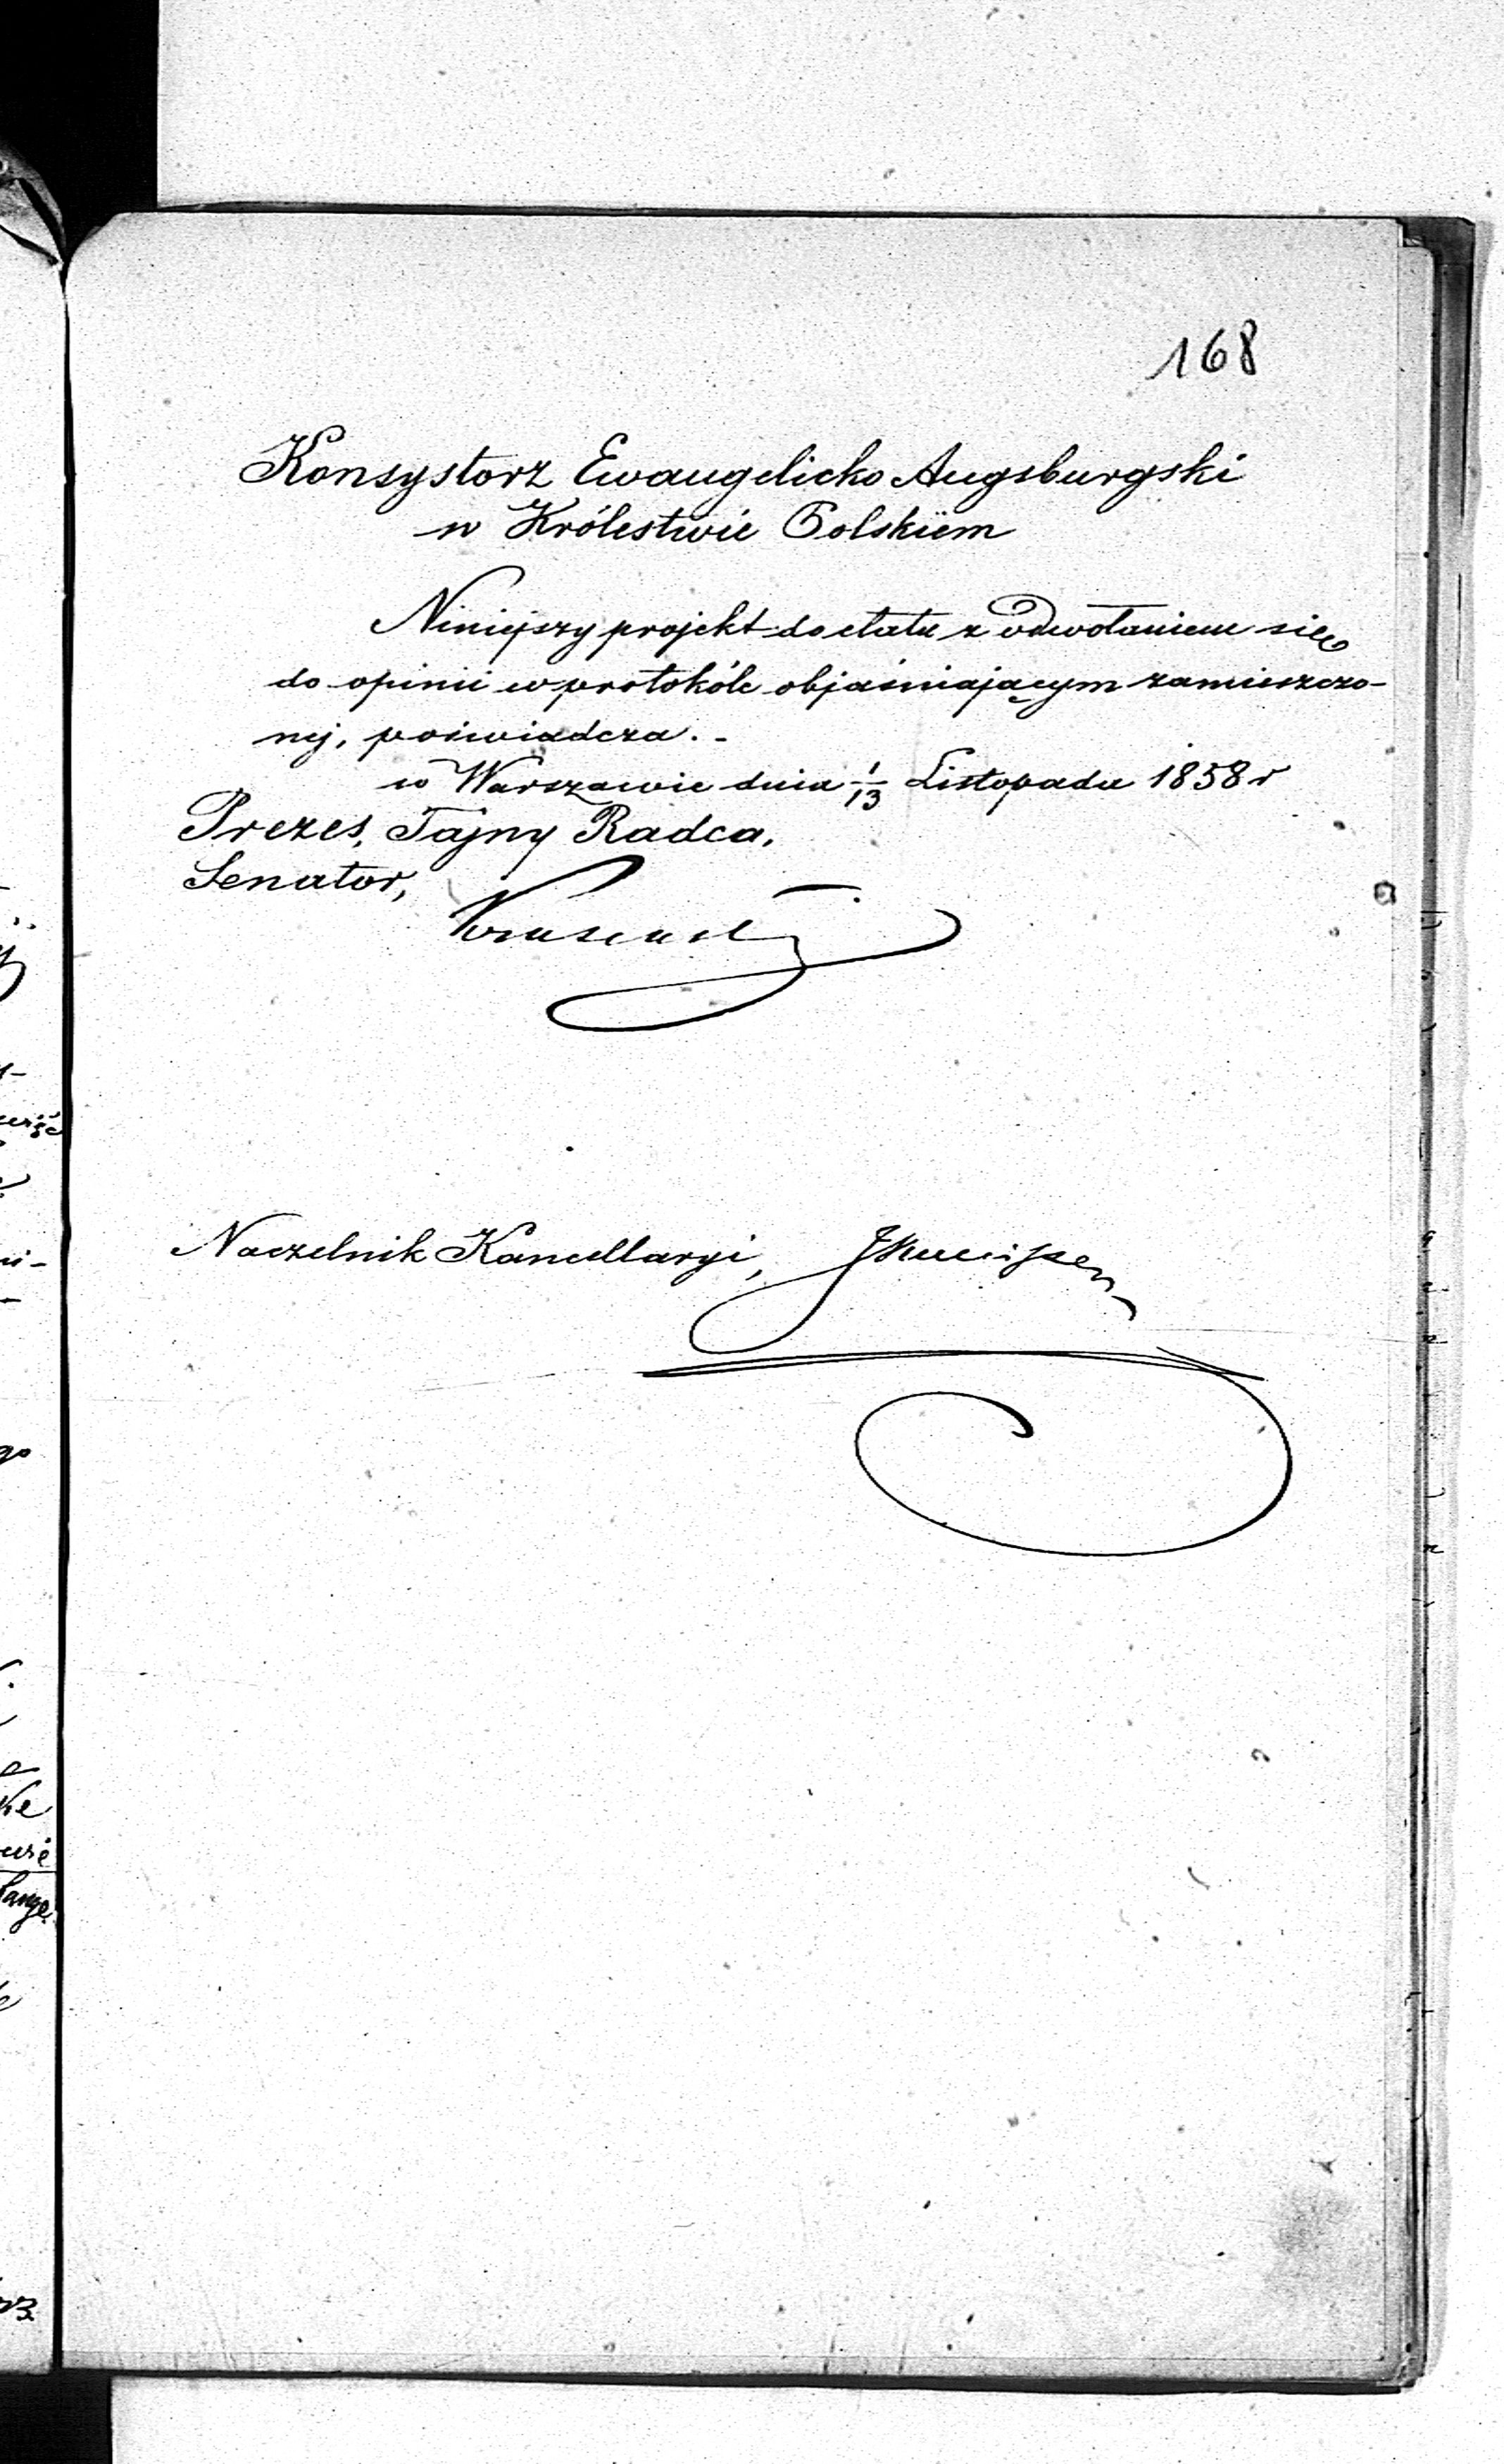 168
Konsystorz Ewangelicko Augsburgski
w Królestwie Polskiem
Niniejszy projekt do etatu z odwołaniem się
do opinii w protokóle objaśniającym zamieszczo-
nej, poświadcza. -
w Warszawie dnia 1/13 Listopada 1858 r
Prezes, Tajny Radca,
Senator,
Naczelnik Kancellaryi,